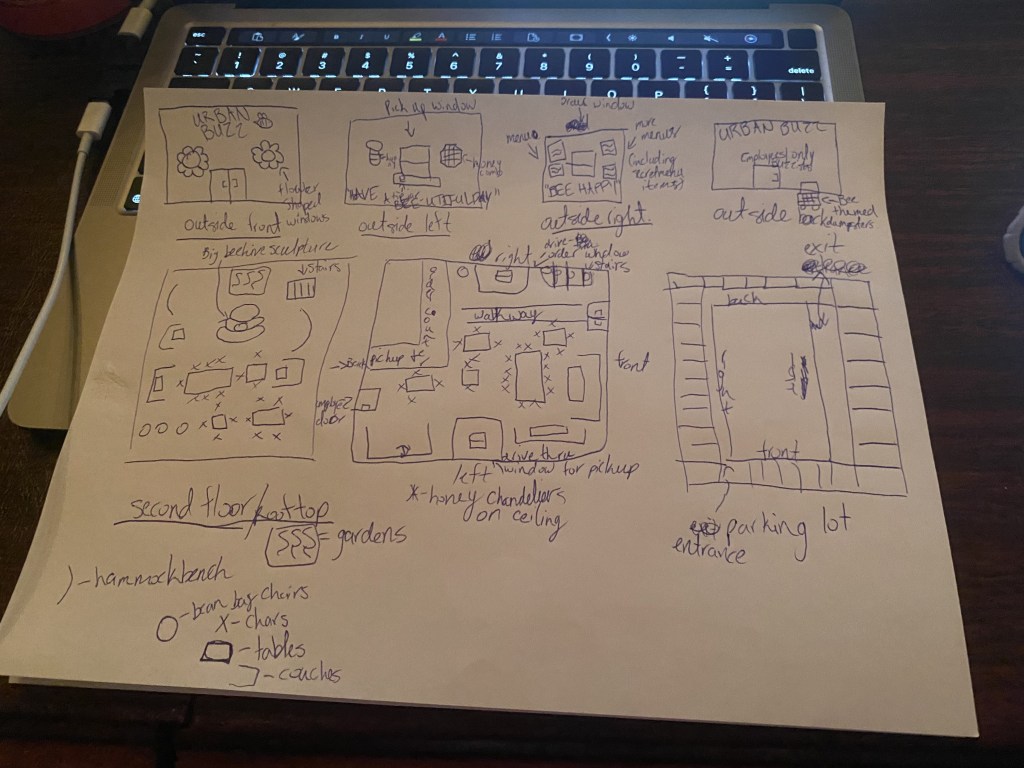 esc
B I U
! @ # $ % ^ & * ( ) — +
1 2 3 4 5 6 7 8 9 0 - =
delete
URBAN
BUZZ
flower
shaped
windows
outside front
Pick up window
honey
comb
"HAVE A BEE-UTIFUL DAY"
outside left
order window
menu
more
menus
(including
items)
"BEE HAPPY"
outside right.
URBAN BUZZ
Employees only
Bee
themed
dumpsters
outside back
Big beehive sculpture
stairs
right
drive-thru
order window
stairs
order counter
walkway
pickup
front
door
left
drive thru
window for pickup
*-honey chandeliers
on ceiling
exit
back
right
front
parking lot
entrance
second floor/rooftop
= gardens
) - hammock bench
- bean bag chairs
X - chars
- tables
- couches